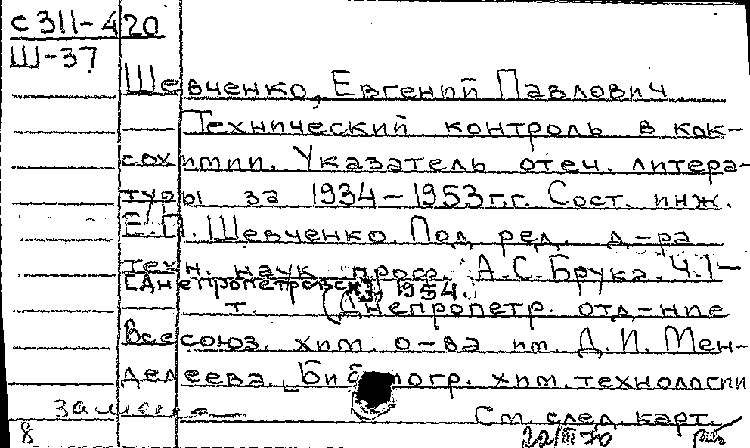 с 311-420
Ш-37
Шевченко, Евгений Павлович
Технический контроль в кок-
сохимии. Указатель отеч. литера-
туры за 1934-1953 г.г. Сост. инж.
Е.П. Шевченко. Под ред. д-ра
техн. наук проф. А.С. Брука. Ч.1-
[Днепропетровск], 1954.
т. (Днепропетр. отд-ние
Всесоюз. хим. о-ва им. Д.И. Мен-
делеева. Библиогр. хим. технологии
См. след. карт.
8 22/III 70